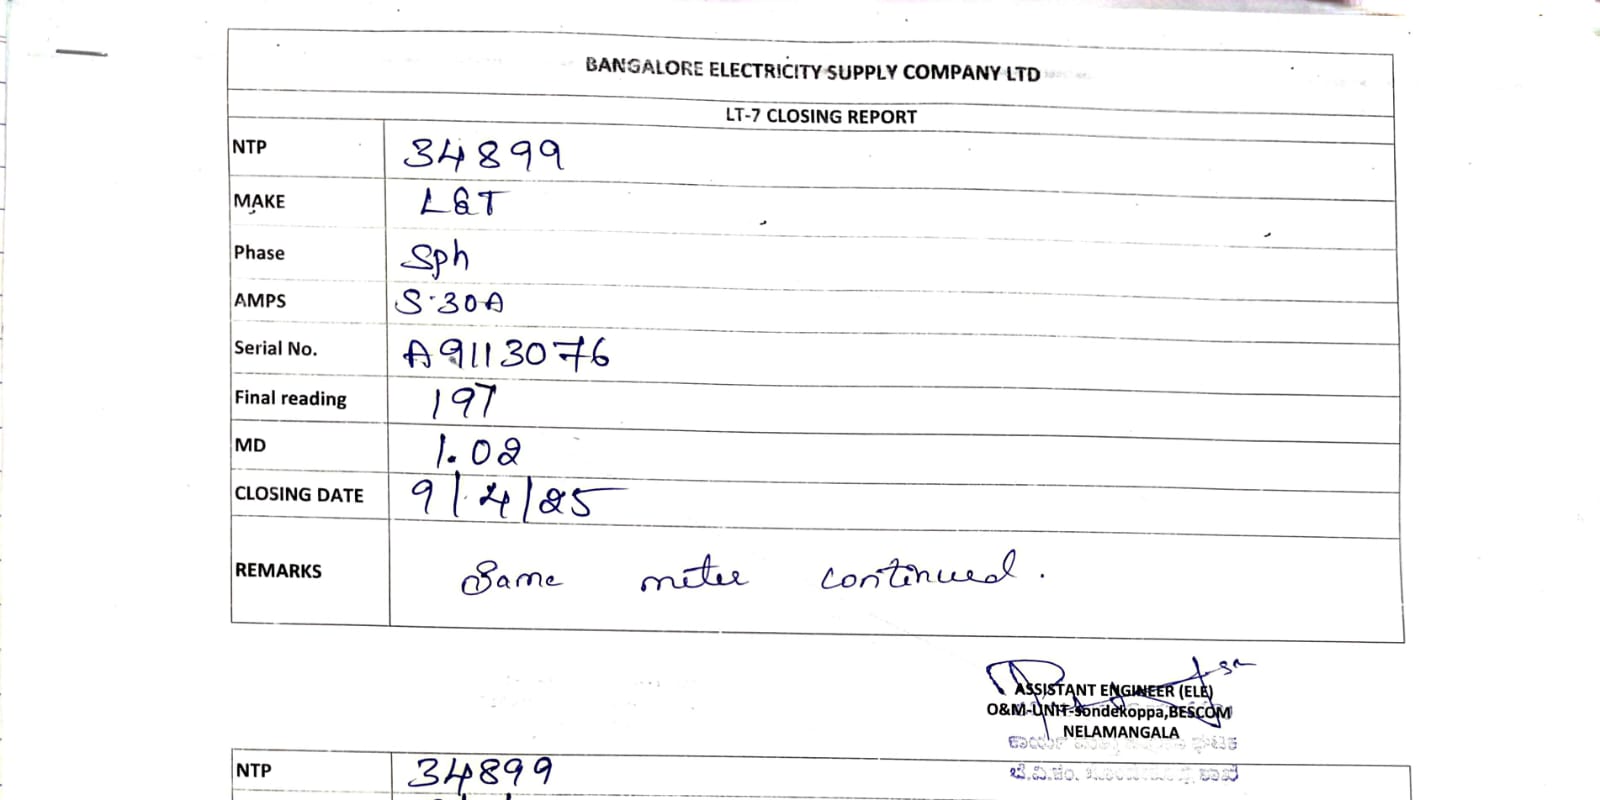 BANGALORE ELECTRICITY SUPPLY COMPANY LTD
LT-7 CLOSING REPORT
NTP 34899
MAKE L&T
Phase Sph
AMPS 5-30A
Serial No. A9113076
Final reading 197
MD 1.02
CLOSING DATE 9/4/25
REMARKS Same meter continued.
ASSISTANT ENGINEER (ELE)
O&M-UNIT-Sondekoppa,BESCOM
NELAMANGALA
NTP 34899